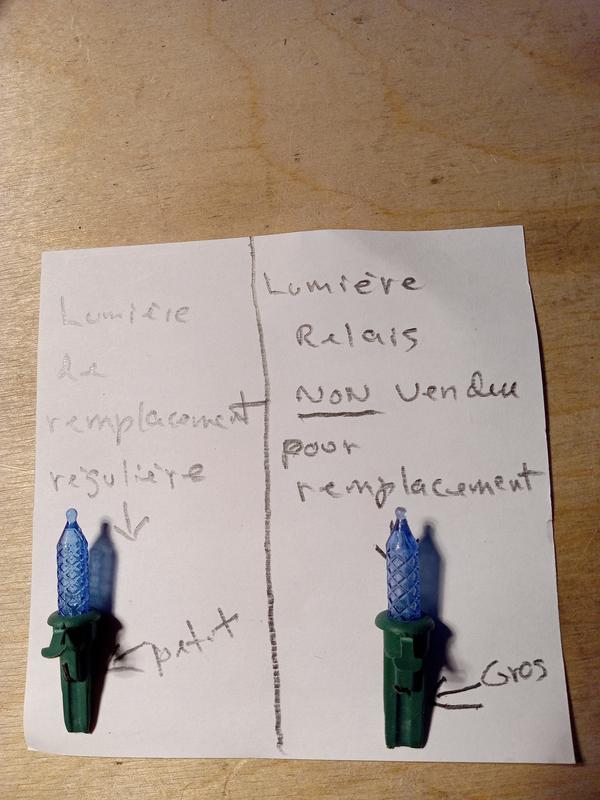 Lumière
de
remplacement
régulière
petit
Lumière
Relais
NON Vendu
pour
remplacement
Gros